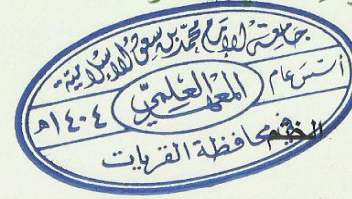 جامعة الإمام محمد بن سعود الإسلامية
المعهد العلمي
أسس عام ١٤٠٤هـ
في محافظة القريات
الختم